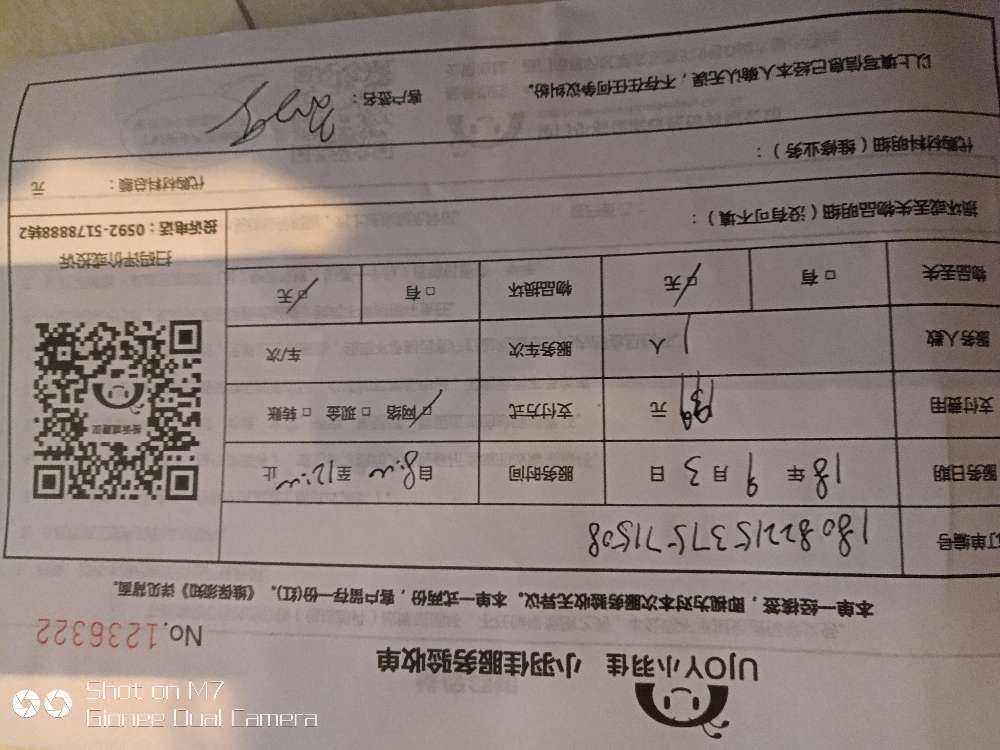 UJOY小羽佳 小羽佳服务验收单
No.1236322
本单一经接签，即视为对本次服务验收无异议。本单一式两份，客户留存一份(红)。《维保须知》详见背面。
订单编号 1808221537571508
服务日期 18年9月3日 服务时间 自8:00至12:00止
支付费用 139元 支付方式 □网络 □现金 □转账
服务人数 1人 服务车次 车/次
物品丢失 □有 □无 物品损坏 □有 □无
扫码评价或投诉
投诉电话：0592-5178888转2
损坏或丢失物品明细（没有可不填）：
代购材料明细（维修业务）：
代购材料总额： 元
以上填写信息已经本人确认无误，不存在任何争议纠纷。
客户签名：
Shot on M7
Gionee Dual Camera